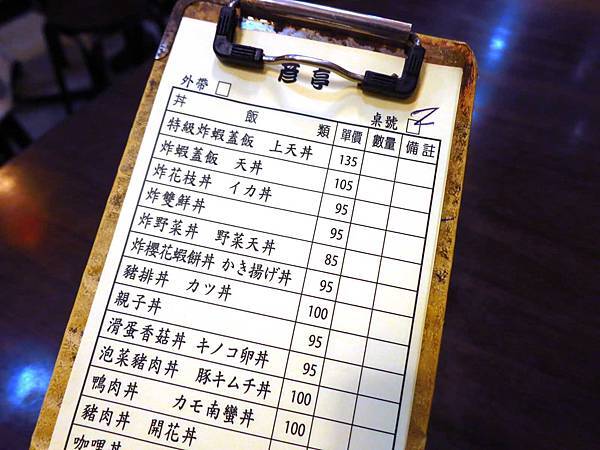 彦亭
外帶 桌號 2
丼飯類 單價 數量 備註
特級炸蝦蓋飯 上天丼 135
炸蝦蓋飯 天丼 105
炸花枝丼 イカ丼 95
炸雙鮮丼 95
炸野菜丼 野菜天丼 85
炸櫻花蝦餅丼 かき揚げ丼 95
豬排丼 カツ丼 100
親子丼 95
滑蛋香菇丼 キノコ卵丼 95
泡菜豬肉丼 豚キムチ丼 100
鴨肉丼 カモ南蠻丼 100
豬肉丼 開花丼
咖哩丼